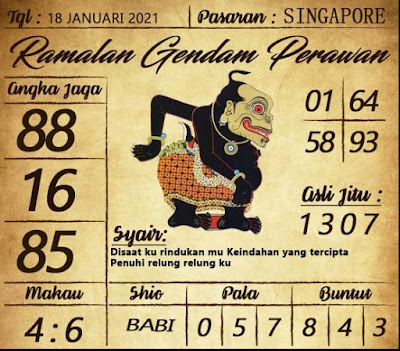 Tgl : 18 JANUARI 2021 Pasaran : SINGAPORE
Ramalan Gendam Perawan
Angka Jaga
88
16
85
01 64
58 93
Asli Jitu :
1 3 0 7
Syair:
Disaat ku rindukan mu Keindahan yang tercipta
Penuhi relung relung ku
Makau Shio Pala Buntut
4 : 6 BABI 0 5 7 8 4 3